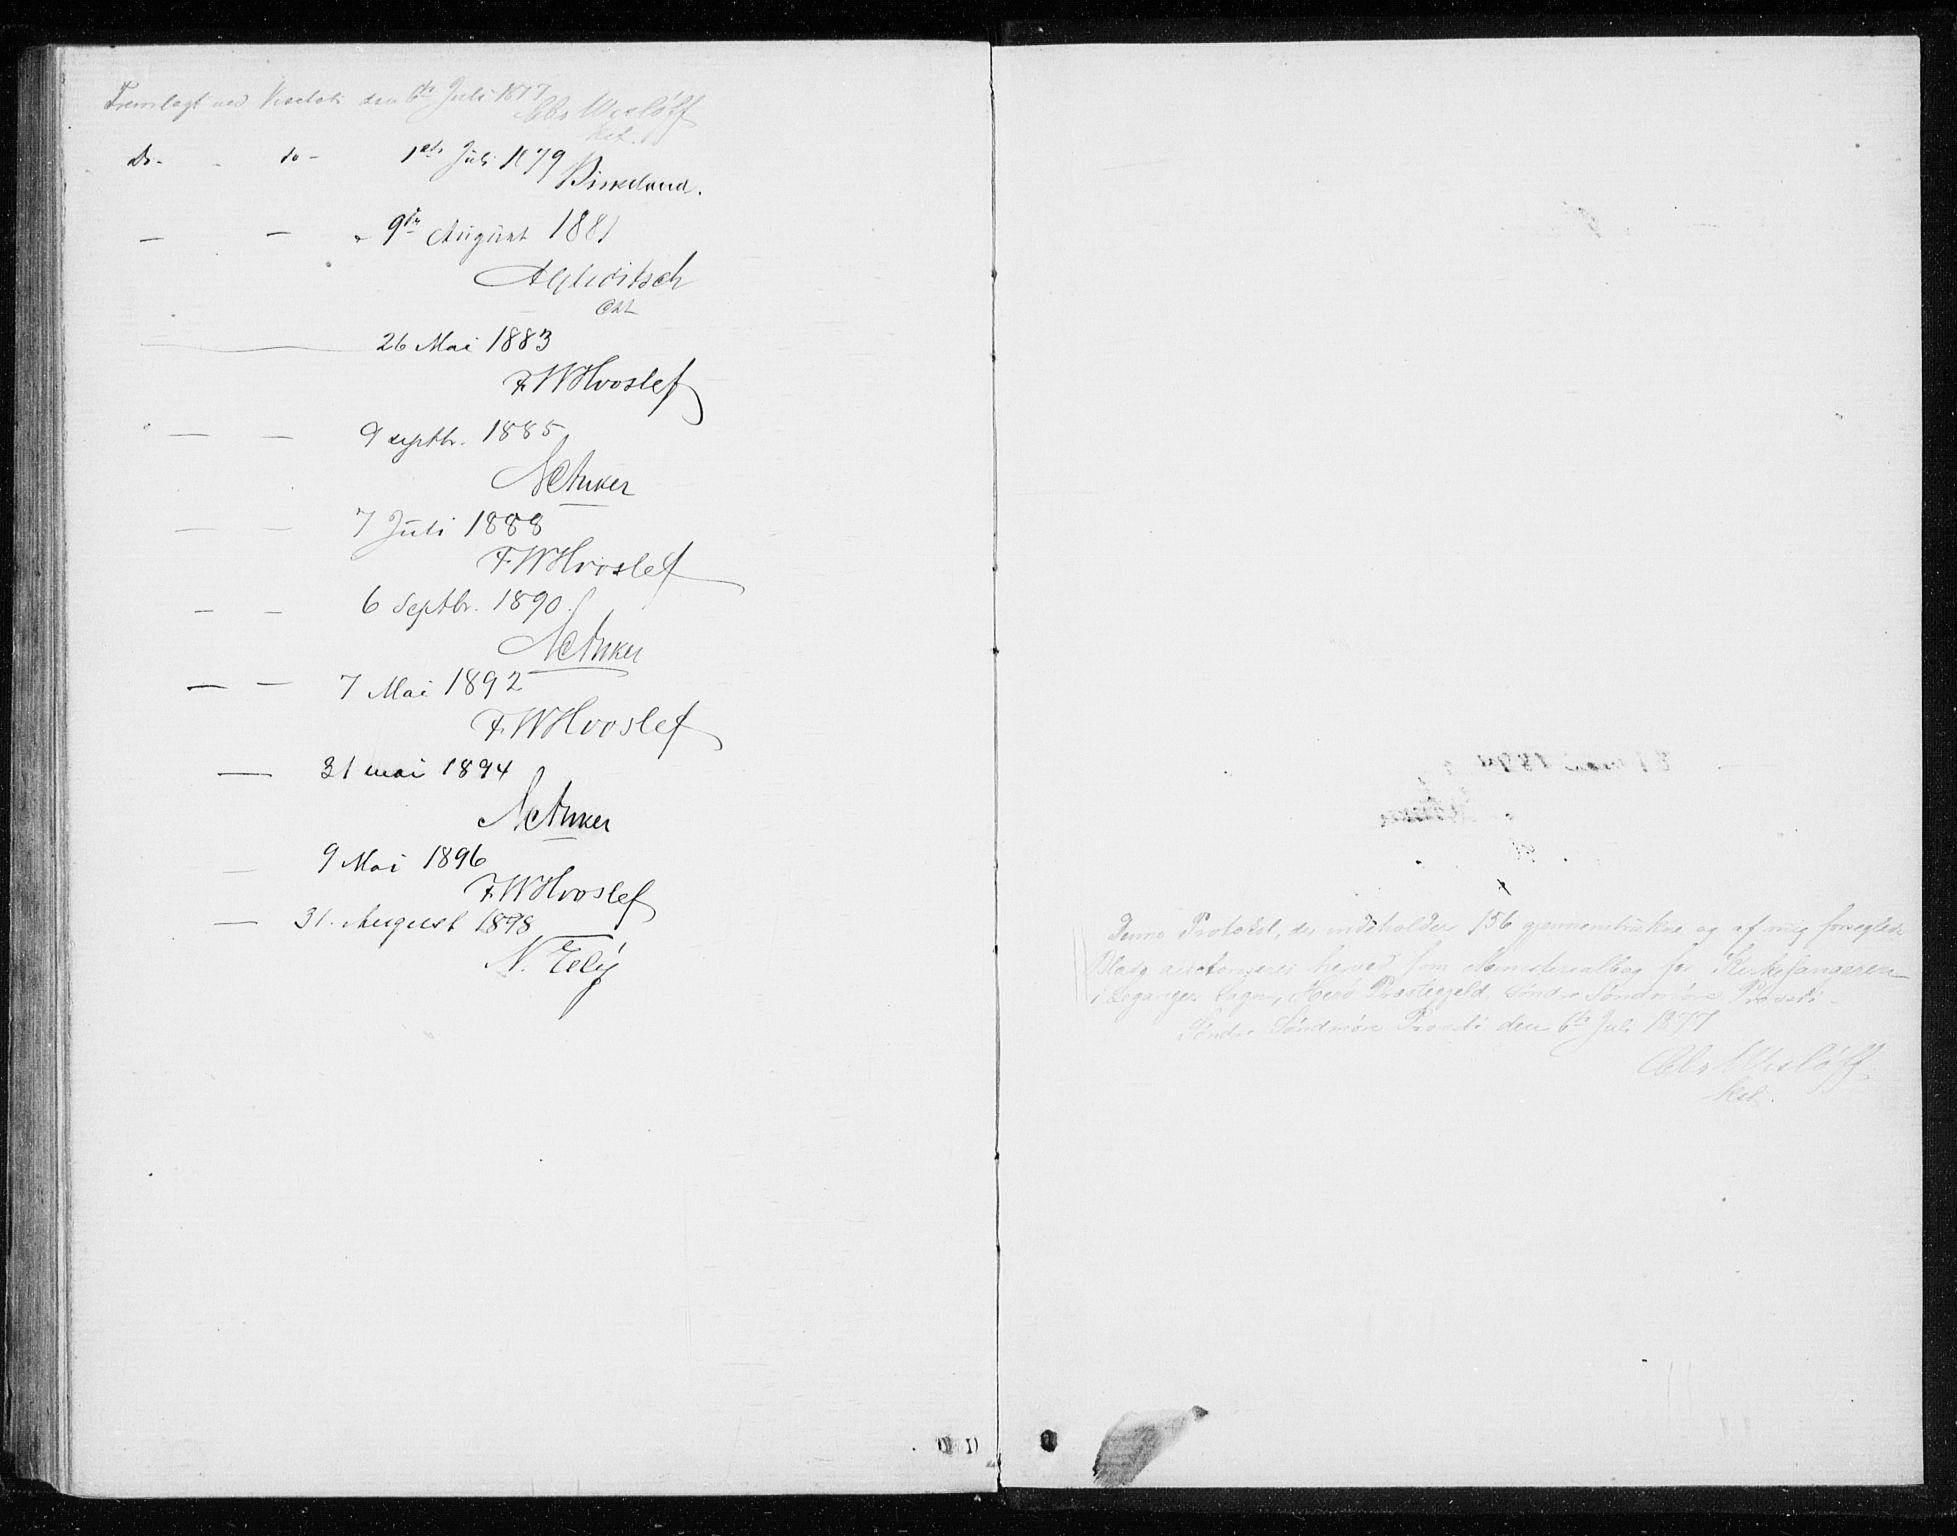 Fremlagt ved Visitats den 6te Juli 1877
Chr Wisløff
Kst.
Do- - do- 1ste Juli 1879
Birkeland.
— — - 9de August 1881
cst
26 Mai 1883
F.W Hvoslef
— — 9 septbr. 1885
NCAnker
— — 7 Juli 1888
F.W Hvoslef
— — 6 Septbr. 1890.
NCAnker
— — 7 Mai 1892
F.W Hvoslef
— 31 mai 1894
NCAnker
— 9 Mai 1896
F.W Hvoslef
— 31. August 1898
N.
Denne Protokol, der indeholder 156 gjennemtrukne og af mig forseglede
Blade autoriseres herved som Ministerialbog for Kirkesangeren
i Leganger Sogn, Herö Præstegjeld, Søndre Søndmøre Provsti -
Søndre Søndmøre Provsti den 6te Juli 1877
Chr Wisløff
Kst.